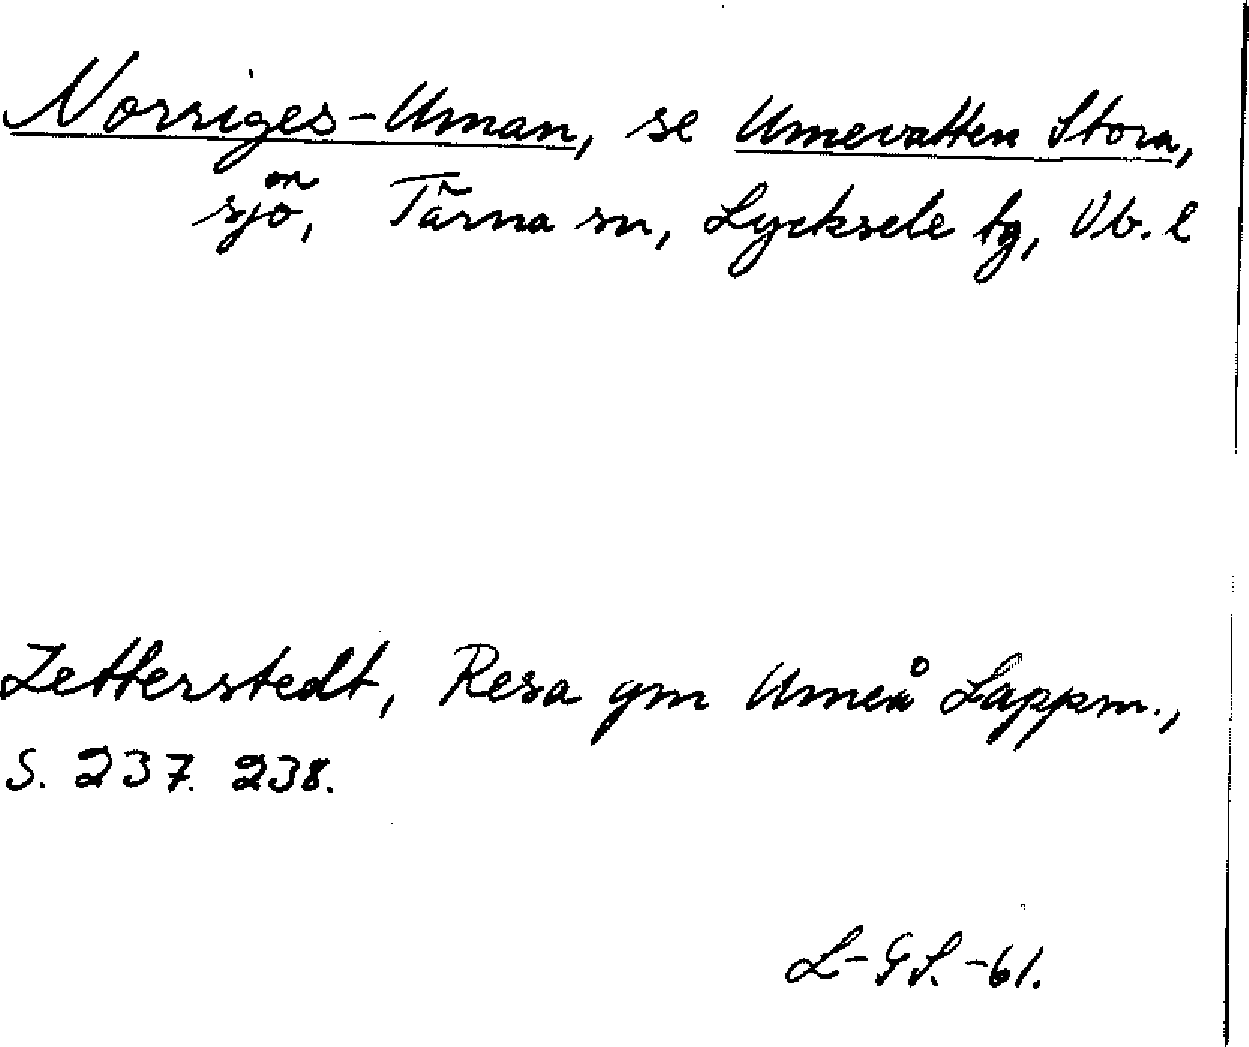 Norriges-Uman, se Umevatten Stora,
sjön, Tärna sn, Lycksele tg, Vb. l
Zetterstedt, Resa gm Umeå Lappm.,
S. 237. 238.
L-GS.-61.